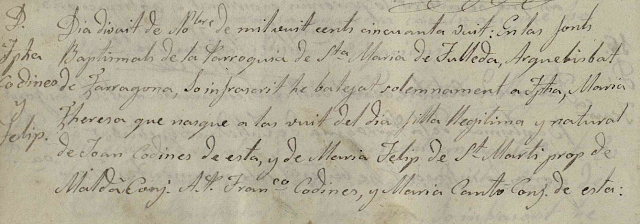 D.
Jpha
Codines
y
Felip.
Dia divuit de Nbre de mil vuit cents cincuanta vuit: En las fonts
Baptismals de la Parroquia de Sta Maria de Fulleda, Arquebisbat
de Tarragona, lo infrascrit he batejat solemnament a Jpha, Maria
Theresa que nasque a las vuit del dia filla llegitima y natural
de Joan Codines de esta, y de Maria Felip de St Marti prop de
Maldá Conj. A.P. Franco Codines, y Maria Cantó Conj. de esta: